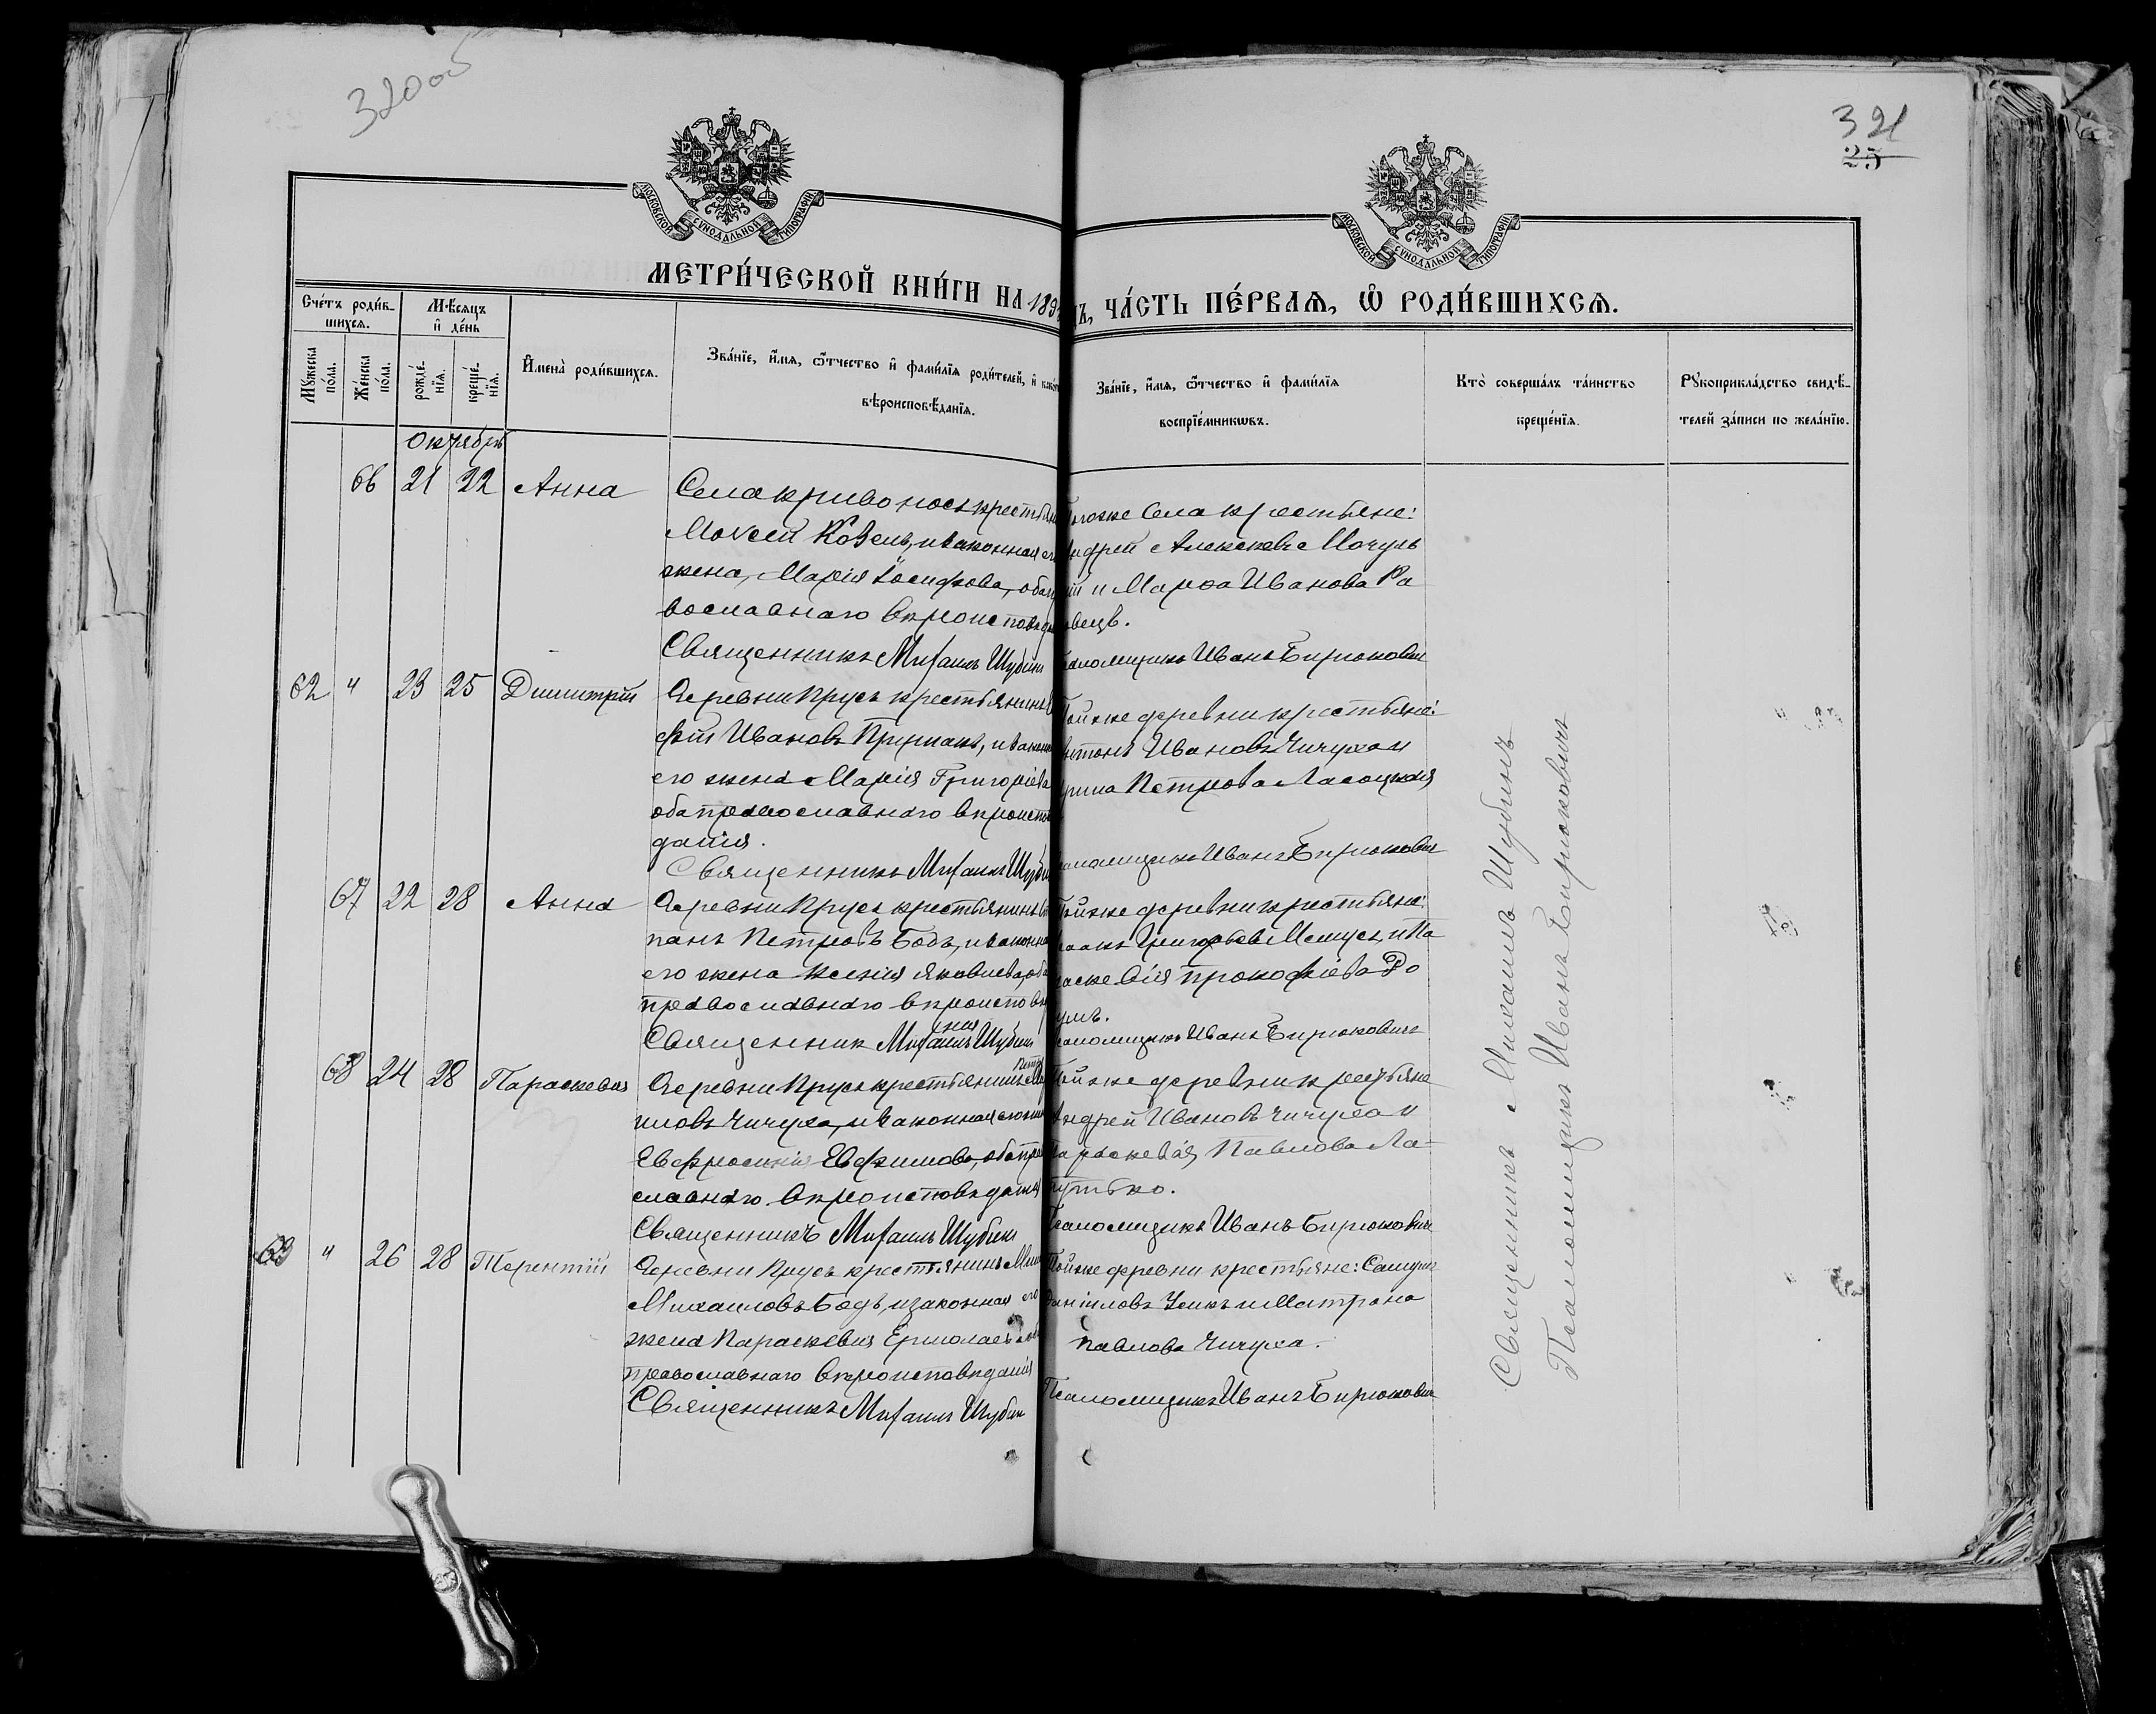 320об
321
25
МОСКОВСКОЙ СѴНОДАЛЬНОЙ ТИПОГРАФІИ
МОСКОВСКОЙ СѴНОДАЛЬНОЙ ТИПОГРАФІИ
МЕТРИ́ЧЕСКОЙ КНИ́ГИ НА 189
ЧА́СТЬ ПЕ́РВАѦ, Ѿ РОДИ́ВШИХСѦ.
Сче́тъ роди́в-
шихсѧ.
Мꙋжеска по́ла.
Же́нска по́ла.
Мѣ́сѧцъ
и҆ де́нь
рожде́-
нїѧ.
креще́-
нїѧ.
И҆мена̀ роди́вшихсѧ.
Зва́нїе, и҆́мѧ, ѻ҆́тчество и҆ фами́лїѧ роди́телей, и҆
вѣроисповѣ́данїѧ.
Зва́нїе, и҆́мѧ, ѻ҆́тчество и҆ фами́лїѧ
воспрїе́мникѡвъ.
Кто̀ соверша́лъ та́инство
креще́нїѧ.
Рꙋкоприкла́дство свидѣ́-
телей за́писи по жела́нїю.
Октябрь
66 21 22 Анна
Села Кривоноск крестьян
Моѵсей Козелъ, и законная его
жена, Марія Іосифова, оба пра
вославнаго вероисповедан
Священникъ Михаилъ Шубинъ
Тогоже Села крестьяне:
Андрей Алексеевъ Мочуль
ій и Марѳа Иванова Ра
овецъ.
Псаломщикъ Иванъ Бирюковичъ
62 " 23 25 Димитрій
Деревни Прусъ крестьянинъ
фій Ивановъ Примакъ, и законная
его жена Марія Григоріева
оба православнаго вероиспове
данія.
Священникъ Михаилъ Шубинъ
Тойже деревни крестьяне:
Антонъ Ивановъ Чичуха и
Ирина Петрова Ласоцкая
Псаломщикъ Иванъ Бирюковичъ
67 22 28 Анна
Деревни Прусъ крестьянинъ Сте
панъ Петровъ Бодъ, и законная
его жена Ксенія Яковлева, оба
православнаго вероисповеда
нія
Священник Михаилъ Шубинъ
Тойже деревни крестьяне:
Исаакъ Григорьев и Па
раскевія Прокофіева До
Псаломщикъ Иванъ Бирюковичъ
68 24 28 Параскевія
Деревни Прусъ крестьянинъ
иловъ Чичуха, и законная его жена
Евфросинія Евфимова, оба право
славнаго вероисповеданія
Священникъ Михаилъ Шубинъ
Тойже деревни крестьяне
Андрей Ивановъ Чичуха и
Параскевія Павлова Ла-
путько.
Псаломщикъ Иванъ Бирюковичъ
63 " 26 28 Терентій
Деревни Прусъ крестьянинъ
Михаиловъ Бодъ, и законная его
жена Параскевия Ермолаева оба
православнаго вероисповеданія
Священникъ Михаилъ Шубин
Тойже деревни крестьяне: Самуилъ
Даніиловъ и Матрона
Павлова Чичуха.
Псаломщикъ Иванъ Бирюковичъ
Священникъ Михаилъ Шубинъ
Псаломщикъ Иванъ Бирюковичъ